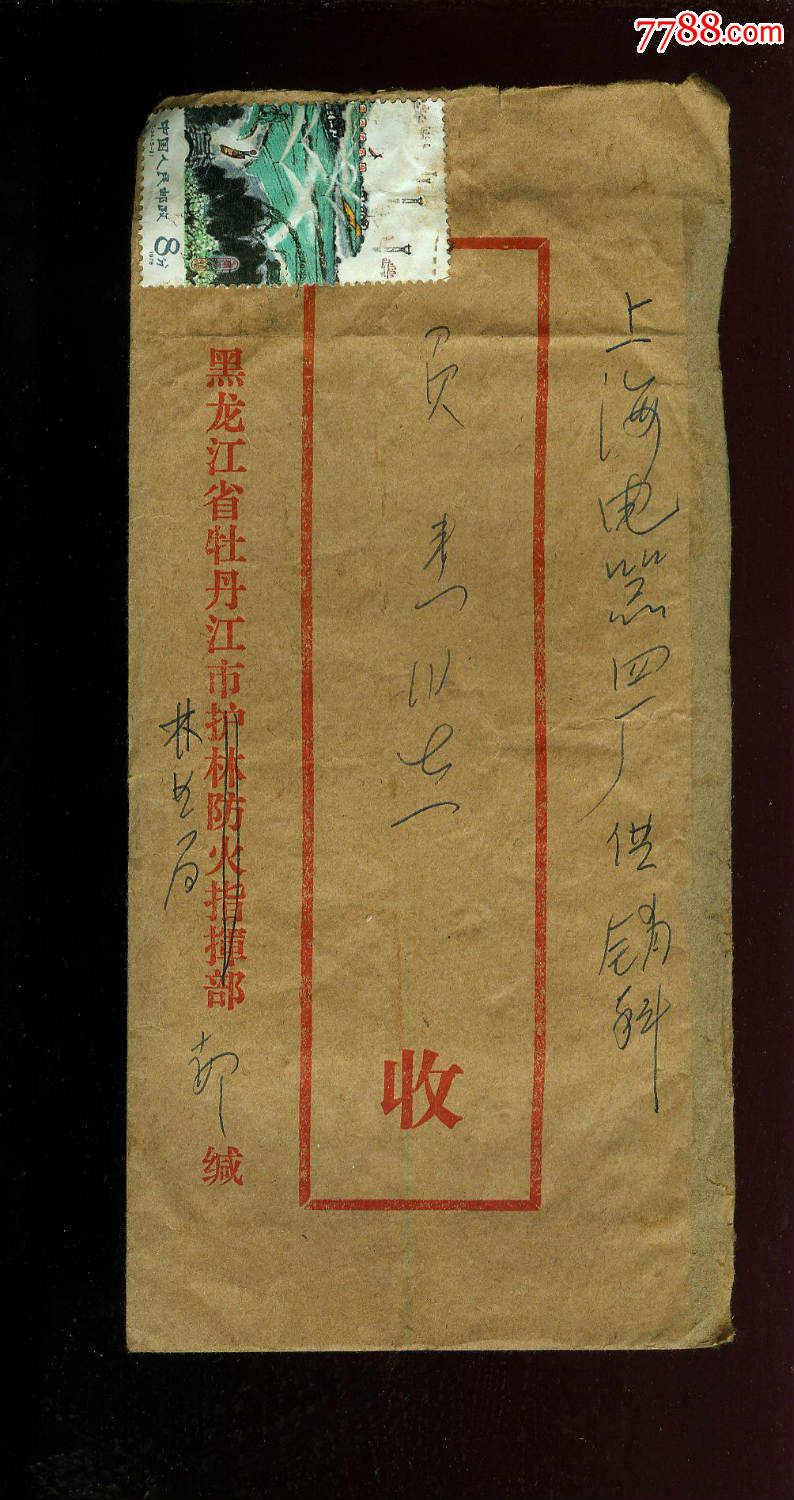 7788.com
上海电器四厂供销科
收
黑龙江省牡丹江市护林防火指挥部
林业局
缄
中国人民邮政
8分
1978